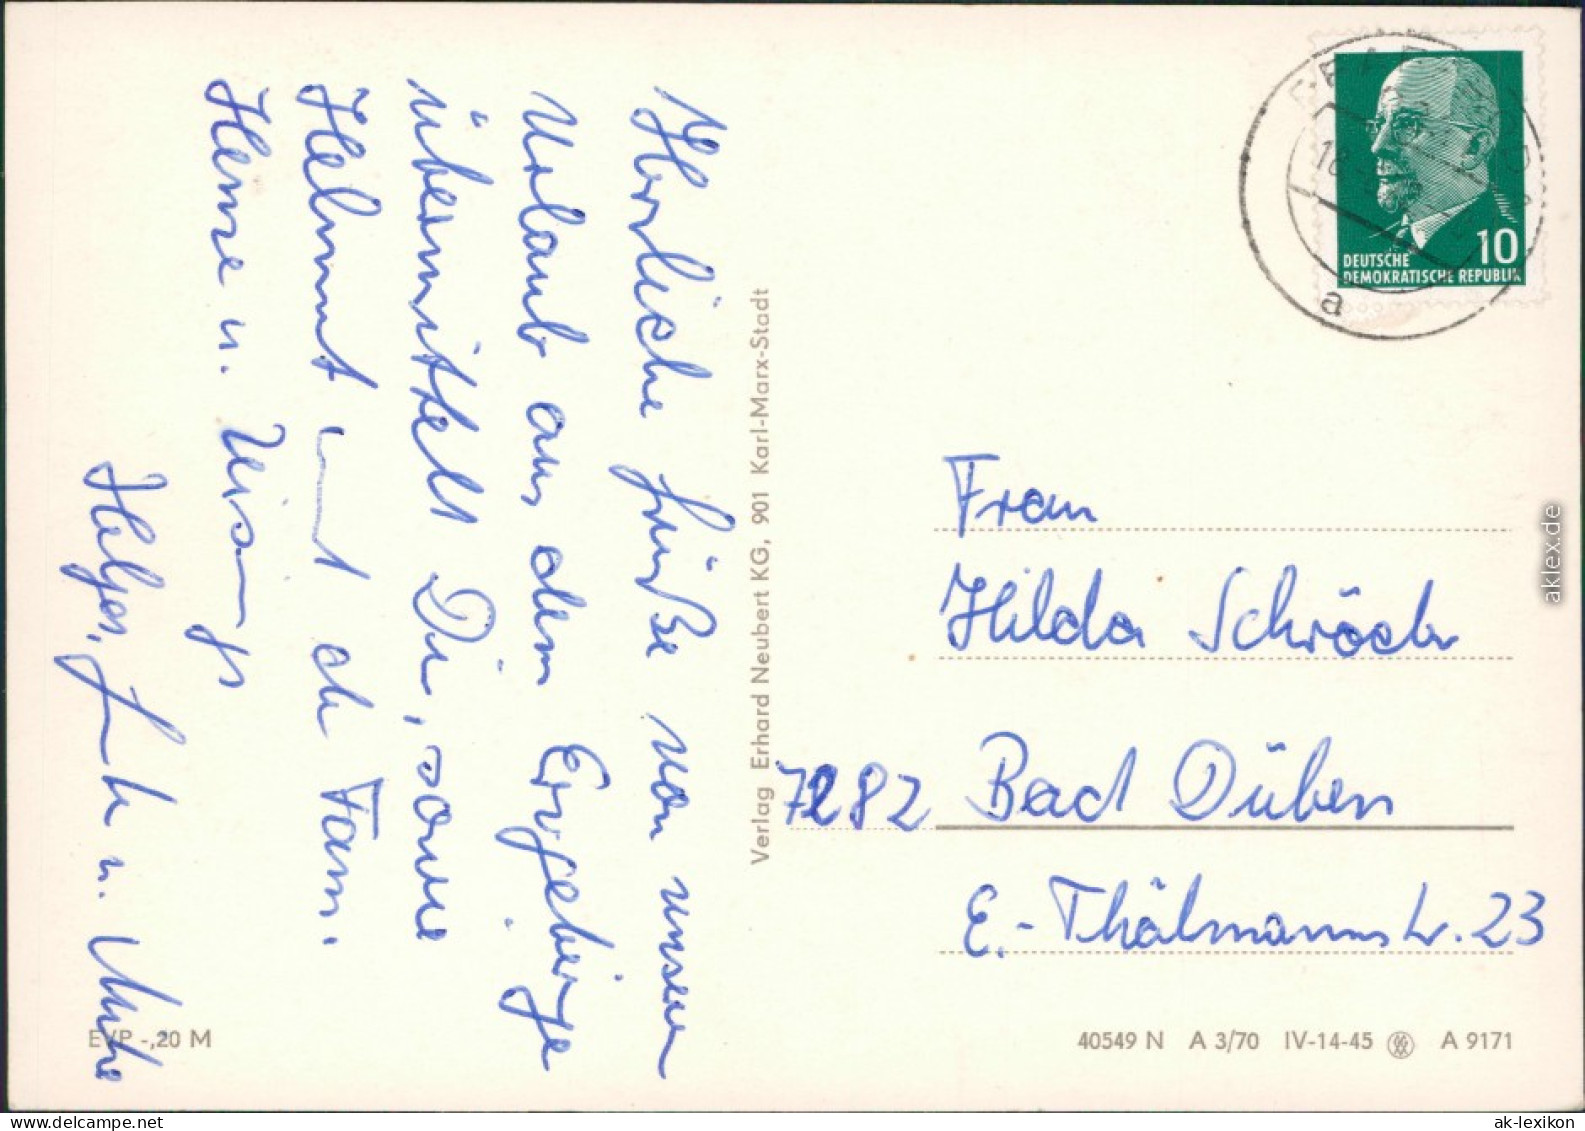 Herzliche Grüße von unserem
Urlaub aus dem Erzgebirge
übermittelt Dir, sowie
Helmut und de Fam.
Hense u.
Helga, u.
Verlag Erhard Neubert KG, 901 Karl-Marx-Stadt
DEUTSCHE
DEMOKRATISCHE REPUBLIK
10
18
a
Frau
Hilda
7282 Bad Düben
E.-Thälmannstr. 23
EVP -,20 M
40549 N A 3/70 IV-14-45 A 9171
aklex.de
oldthing.de
ak-lexikon